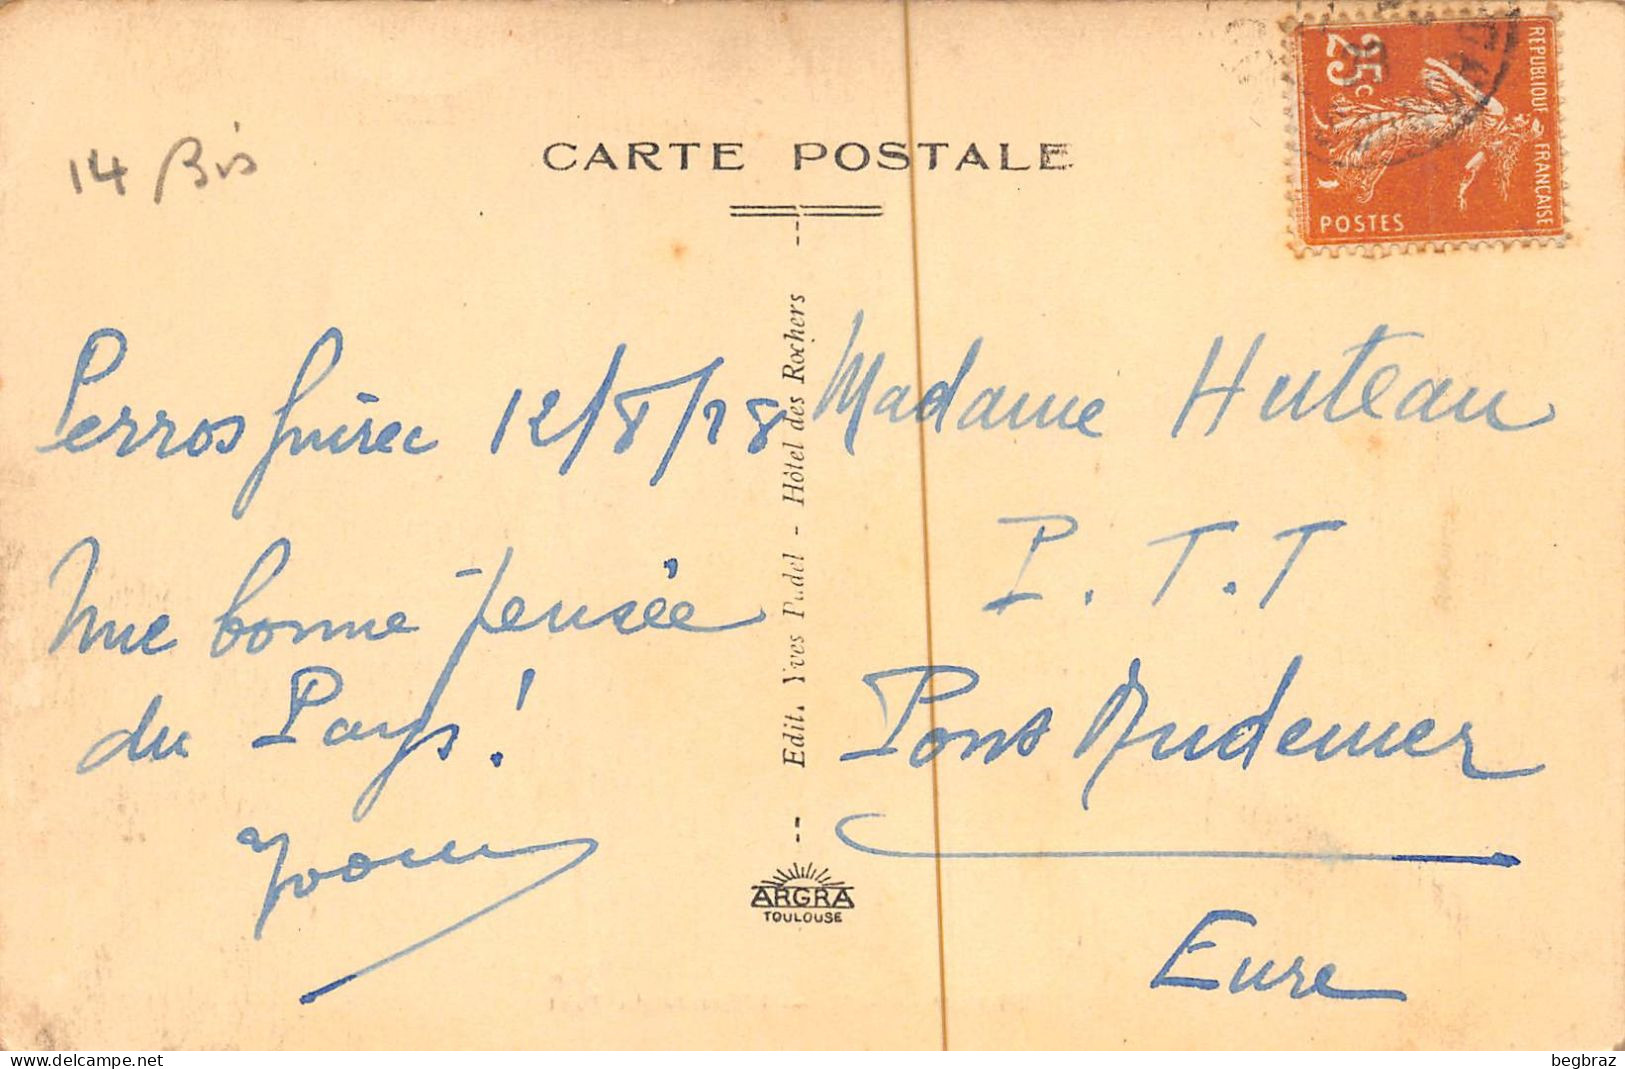 14 Bis
CARTE POSTALE
25c
REPUBLIQUE FRANCAISE
POSTES
Perros Guirec 12/8/28
Une bonne pensée
du Pays!
Yvonne
Edit. Yves Padel - Hôtel des Rochers
ARGRA
TOULOUSE
Madame Huteau
P.T.T
Pont Audemer
Eure
delcampe.net
begbraz